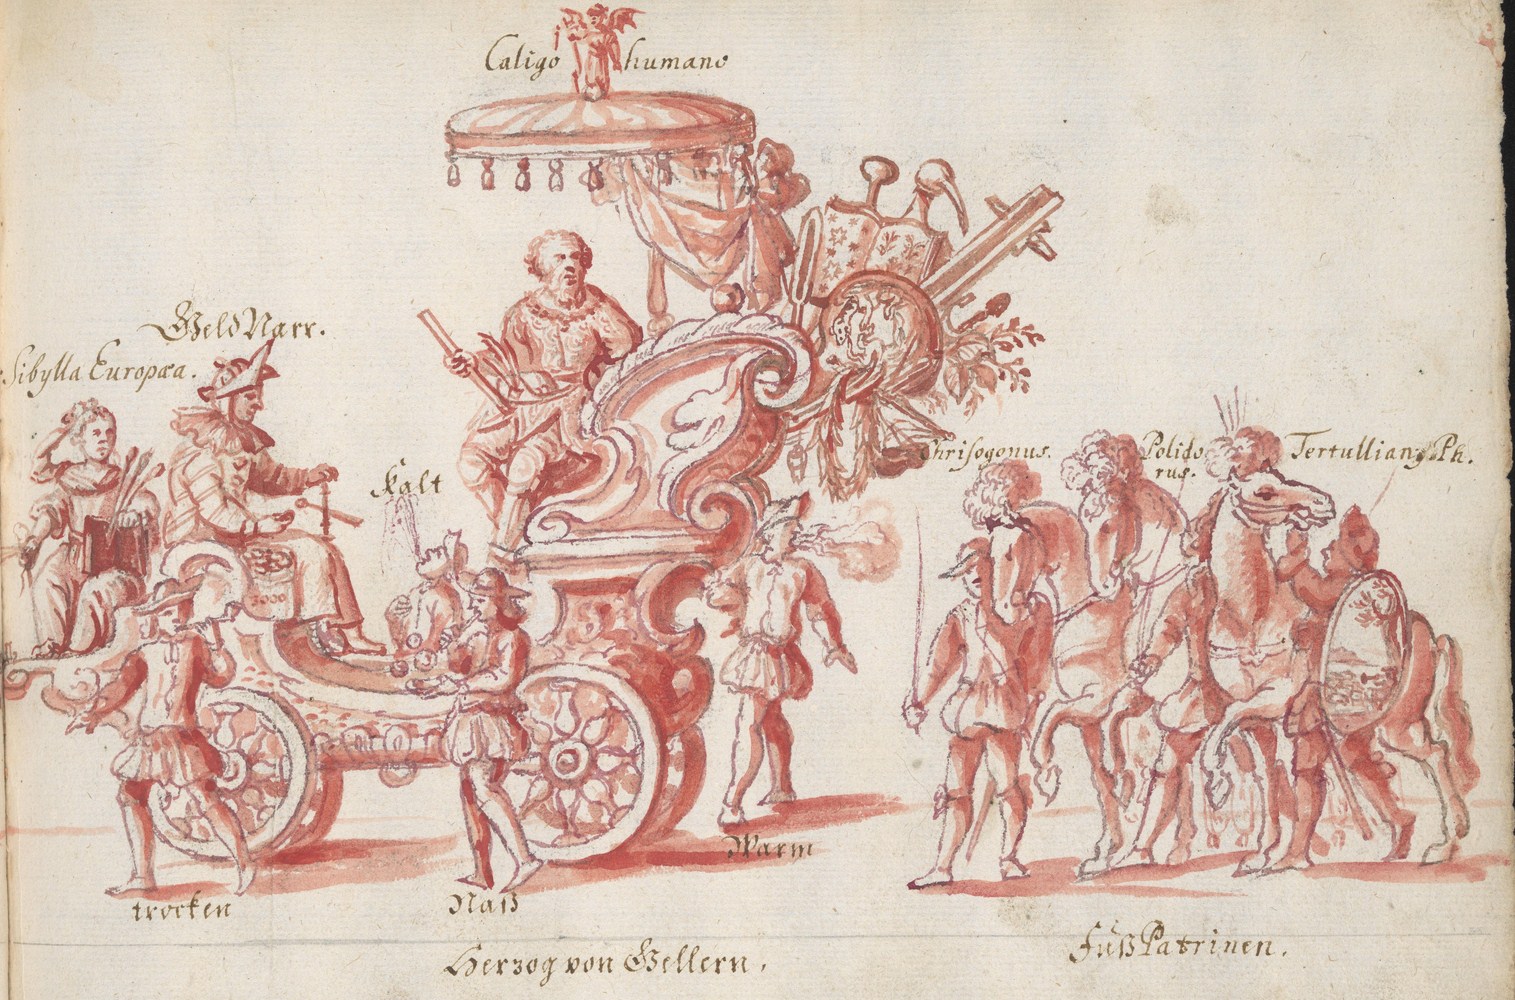 Caligo humano
Geld Narr.
Sibylla Europæa.
Kalt
Chrisogonus.
Polido
rus.
Tertullian9 Ph.
3000
Warm
trocken
Naß
Herzog von Gellern.
Fuß Patrinen.